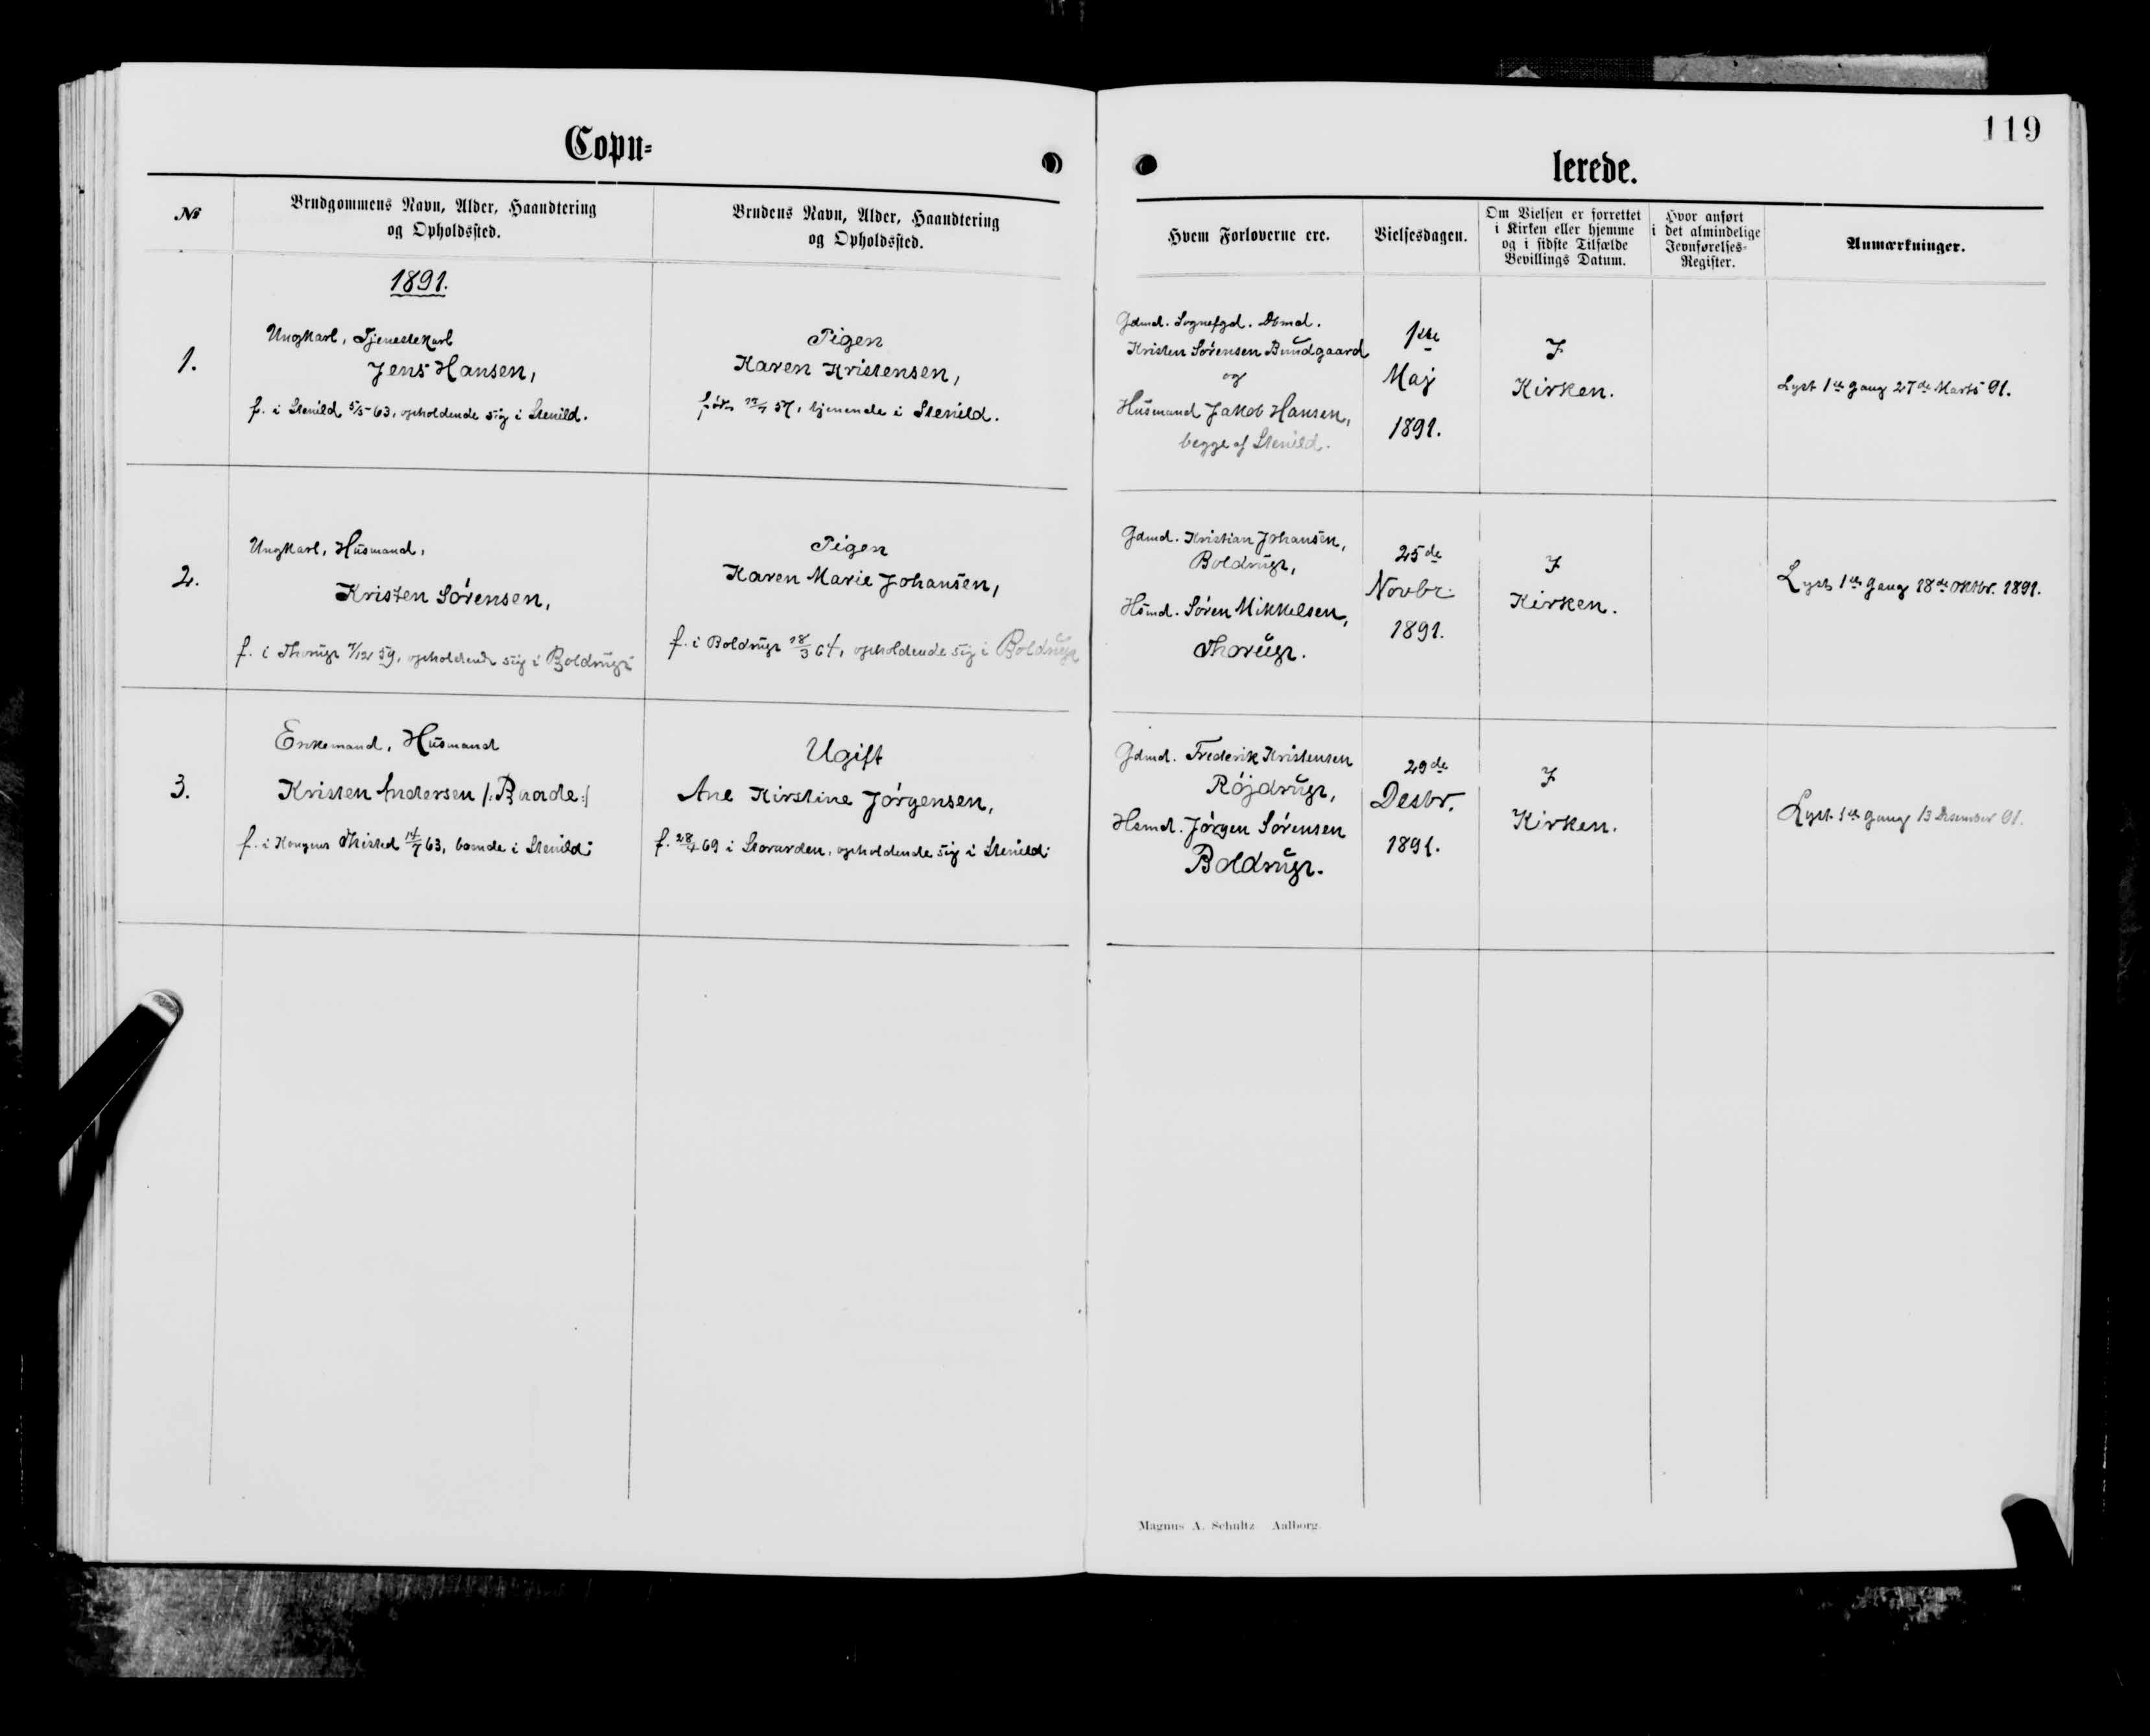 119
Copu=
lerede.
№
Brudgommens Navn, Alder, Haandtering
og Opholdssted.
Brudens Navn, Alder, Haandtering
og Opholdssted.
Hvem Forloverne ere.
Vielsesdagen.
Om Vielsen er forrettet
i Kirken eller hjemme
og i sidste Tilfælde
Bevillings Datum.
Hvor anført
i det almindelige
Jevnførelses-
Register.
Anmærkninger.
1891.
1.
Ungkarl, Tjenestekarl
Jens Hansen,
f. i Stenild 5/5 63, opholdende sig i Stenild.
Pigen
Karen Kristensen,
57, tjenende i Stenild.
Gdmd. Sognefgd. Dbmd.
Kristen Sørensen Bundgaard
og
Husmand Jakob Hansen,
begge af Stenild.
1ste
Maj
1891.
I
Kirken.
Lyst 1ste Gang 27de Marts 91.
2.
Ungkarl, Husmand,
Kristen Sørensen,
f. i Thorup /12 59, opholdende sig i Boldrup
Pigen
Karen Marie Johansen,
f. i Boldrup 18/3 64, opholdende sig i Boldrup
Gdmd. Kristian Johansen,
Boldrup,
Hsmd. Søren Mikkelsen,
Thorup.
25de
Novbr.
1891.
I
Kirken.
Lyst 1ste Gang 18de Oktbr. 1891.
3.
Enkemand, Husmand
Kristen Andersen /: Baade :/
f. i Kongens Thisted 14/7 63, boende i Stenild.
Ugift
Ane Kirstine Jørgensen,
f. 28/4 69 i Storarden, opholdende sig i Stenild.
Gdmd. Frederik Kristensen
Røjdrup,
Hsmd. Jørgen Sørensen
Boldrup.
29de
Desbr.
1891.
I
Kirken.
Lyst 1ste Gang 13 Desember 91.
Magnus A. Schultz Aalborg.